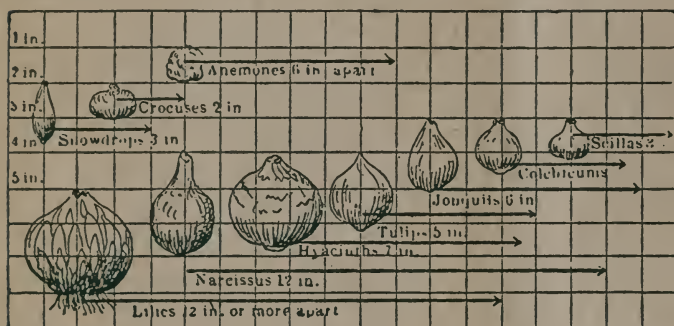 1 in.
2 in.
Anemones 6 in. apart
3 in.
Crocuses 2 in
4 in
Snowdrops 3 in
Scillas 3
Colchicums
5 in.
Jonquils 6 in
Tulips 5 in.
Hyacinths 7 in.
Narcissus 12 in.
Lilies 12 in. or more apart